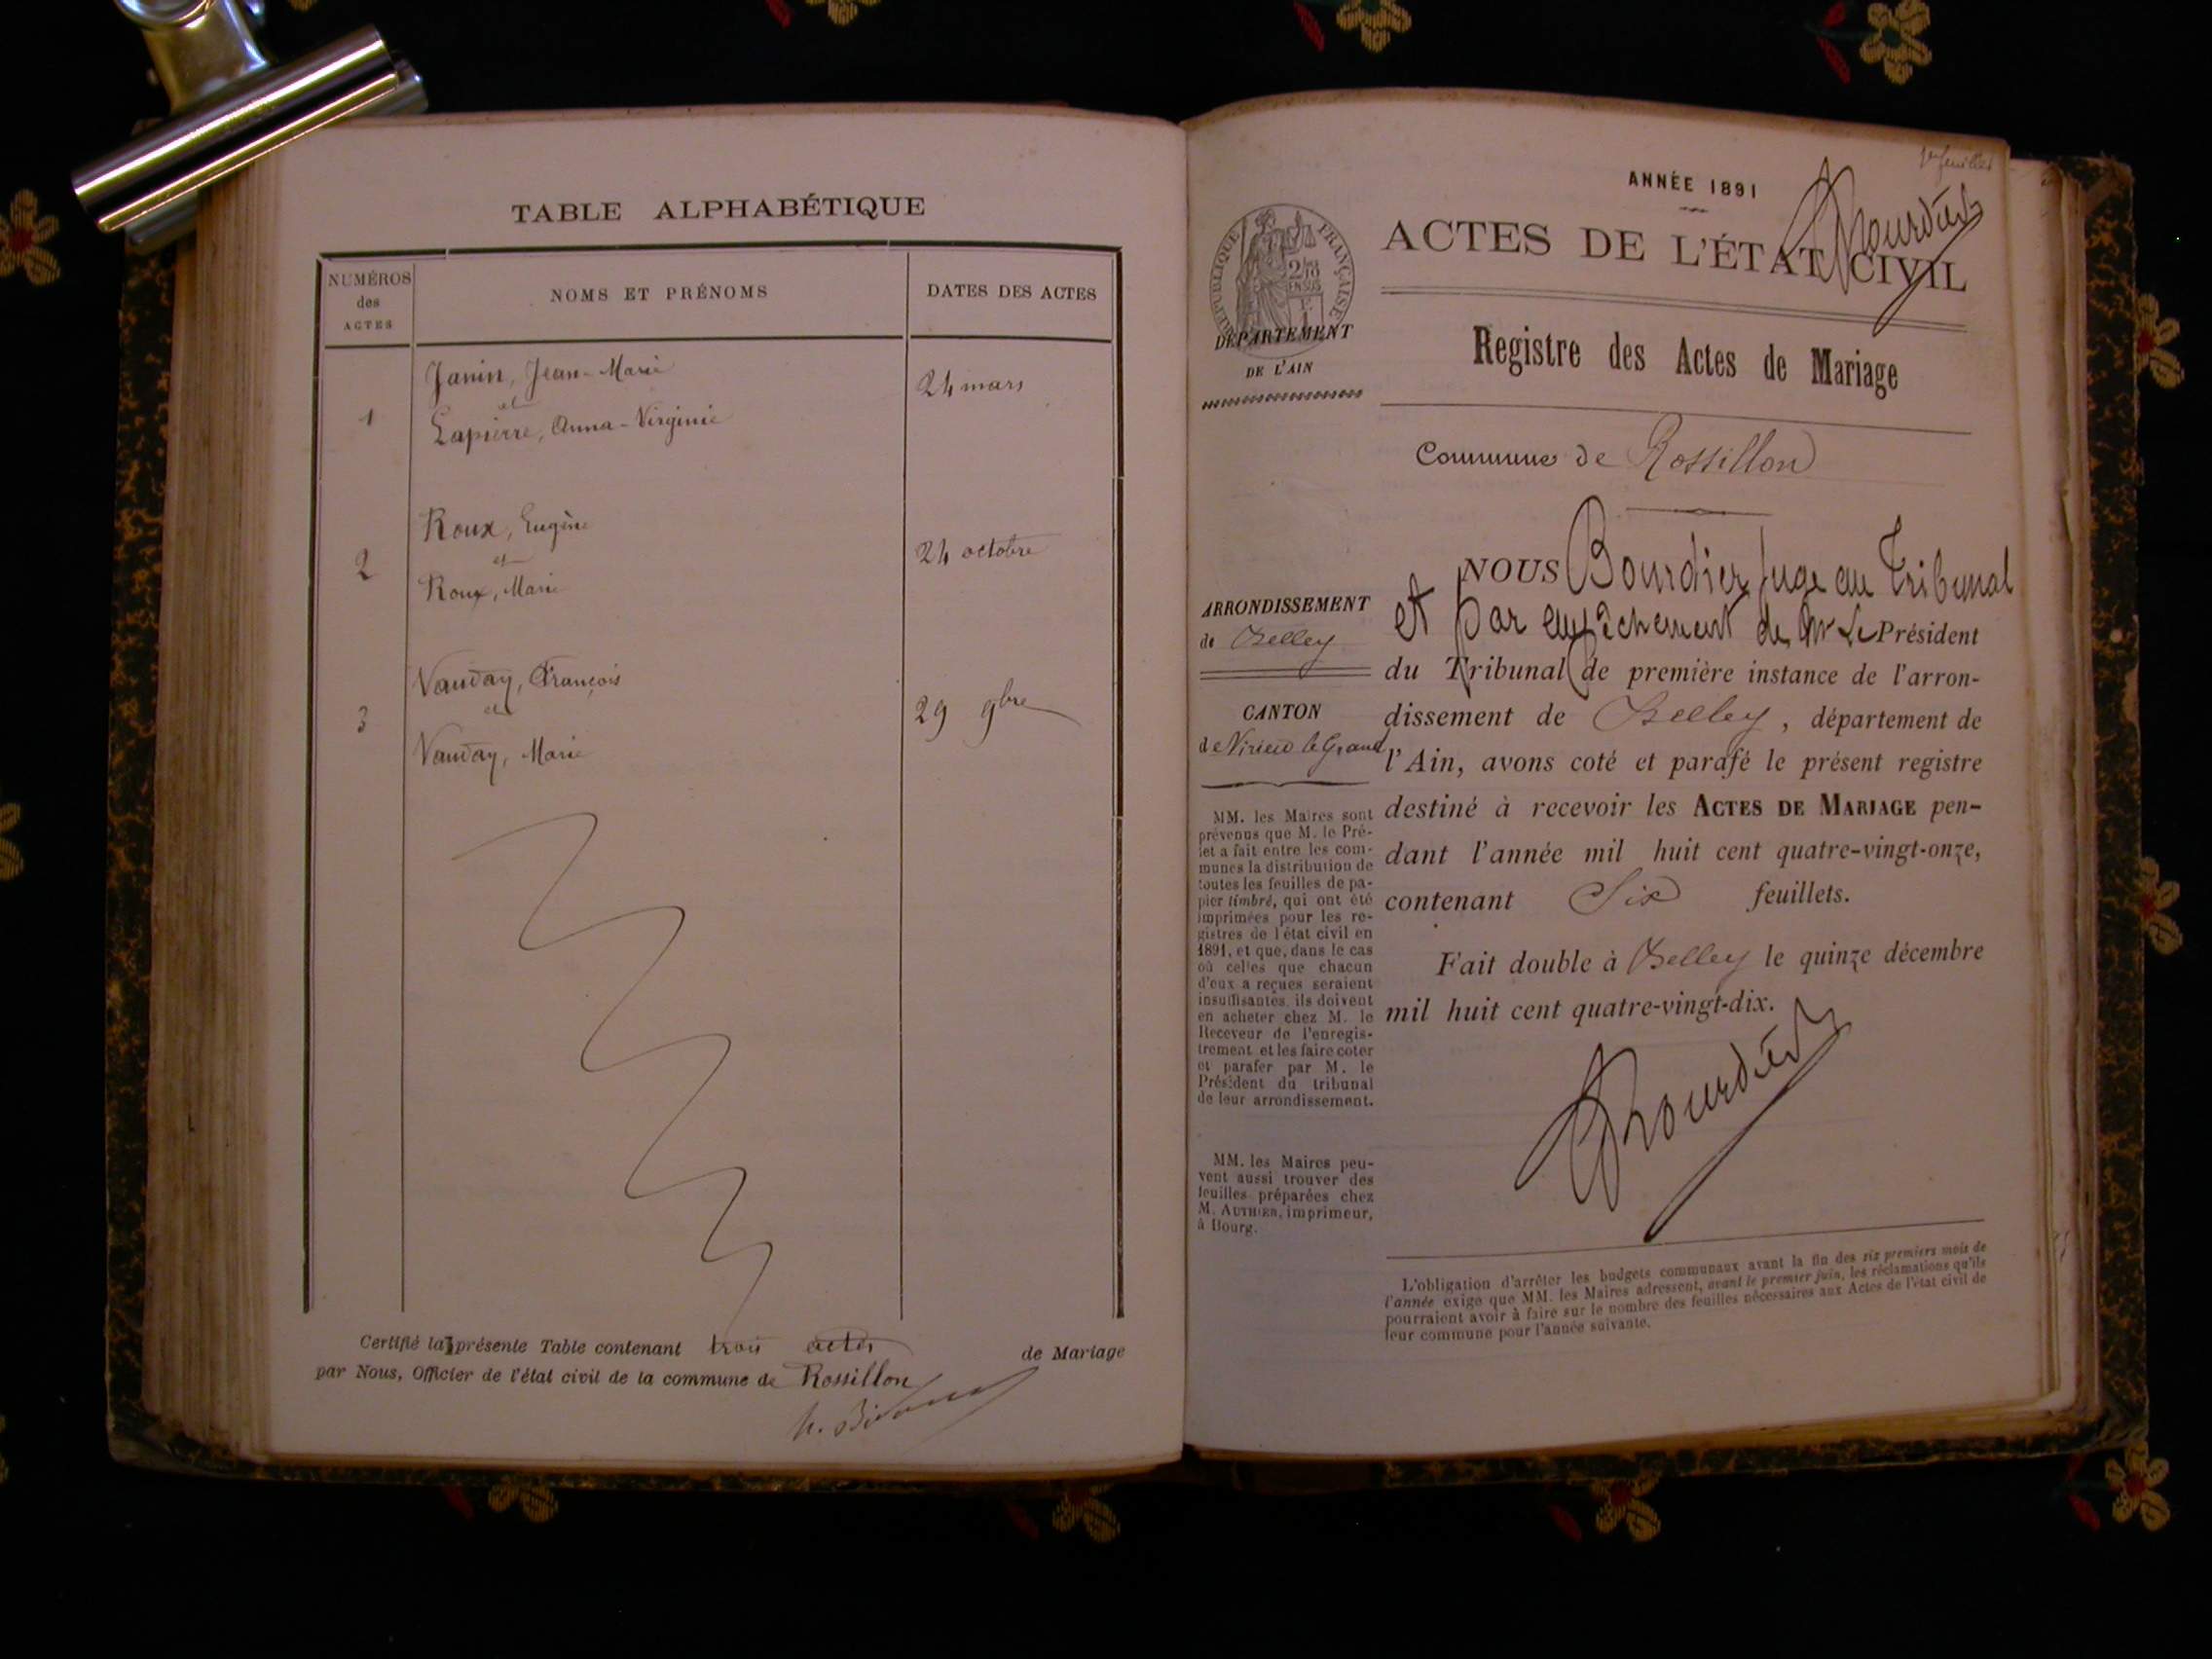 TABLE ALPHABÉTIQUE
NUMÉROS
des
ACTES
NOMS ET PRÉNOMS
DATES DES ACTES
Janin, Jean-Marie
et
1
Lapierre, Anna-Virginie
24 mars
Roux, Eugène
et
2
Roux, Marie
24 octobre
Vauday, François
et
3
Vauday, Marie
29 9bre
Certifié la présente Table contenant trois actes de Mariage
par Nous, Officier de l'état civil de la commune de Rossillon
1er feuillet
ANNÉE 1891
Bourdier
ACTES DE L'ÉTAT CIVIL
RÉPUBLIQUE FRANÇAISE
DÉPARTEMENT
DE L'AIN
Registre des Actes de Mariage
Commune de Rossillon
ARRONDISSEMENT
de Belley
CANTON
de Virieu le Grand
MM. les Maires sont
prévenus que M. le Pré-
fet a fait entre les com-
munes la distribution de
toutes les feuilles de pa-
pier timbré, qui ont été
imprimées pour les re-
gistres de l'état civil en
1891, et que, dans le cas
où celles que chacun
d'eux a reçues seraient
insuffisantes, ils doivent
en acheter chez M. le
Receveur de l'enregis-
trement et les faire coter
et parafer par M. le
Président du tribunal
de leur arrondissement.
MM. les Maires peu-
vent aussi trouver des
feuilles préparées chez
M. AUTHIER, imprimeur,
à Bourg.
NOUS Bourdier Juge au Tribunal
et par empêchement de Mr Le Président
du Tribunal de première instance de l'arron-
dissement de Belley, département de
l'Ain, avons coté et parafé le présent registre
destiné à recevoir les ACTES DE MARIAGE pen-
dant l'année mil huit cent quatre-vingt-onze,
contenant Six feuillets.
Fait double à Belley le quinze décembre
mil huit cent quatre-vingt-dix.
Bourdier
L'obligation d'arrêter les budgets communaux avant la fin des six premiers mois de
l'année exige que MM. les Maires adressent, avant le premier juin, les réclamations qu'ils
pourraient avoir à faire sur le nombre des feuilles nécessaires aux Actes de l'état civil de
leur commune pour l'année suivante.